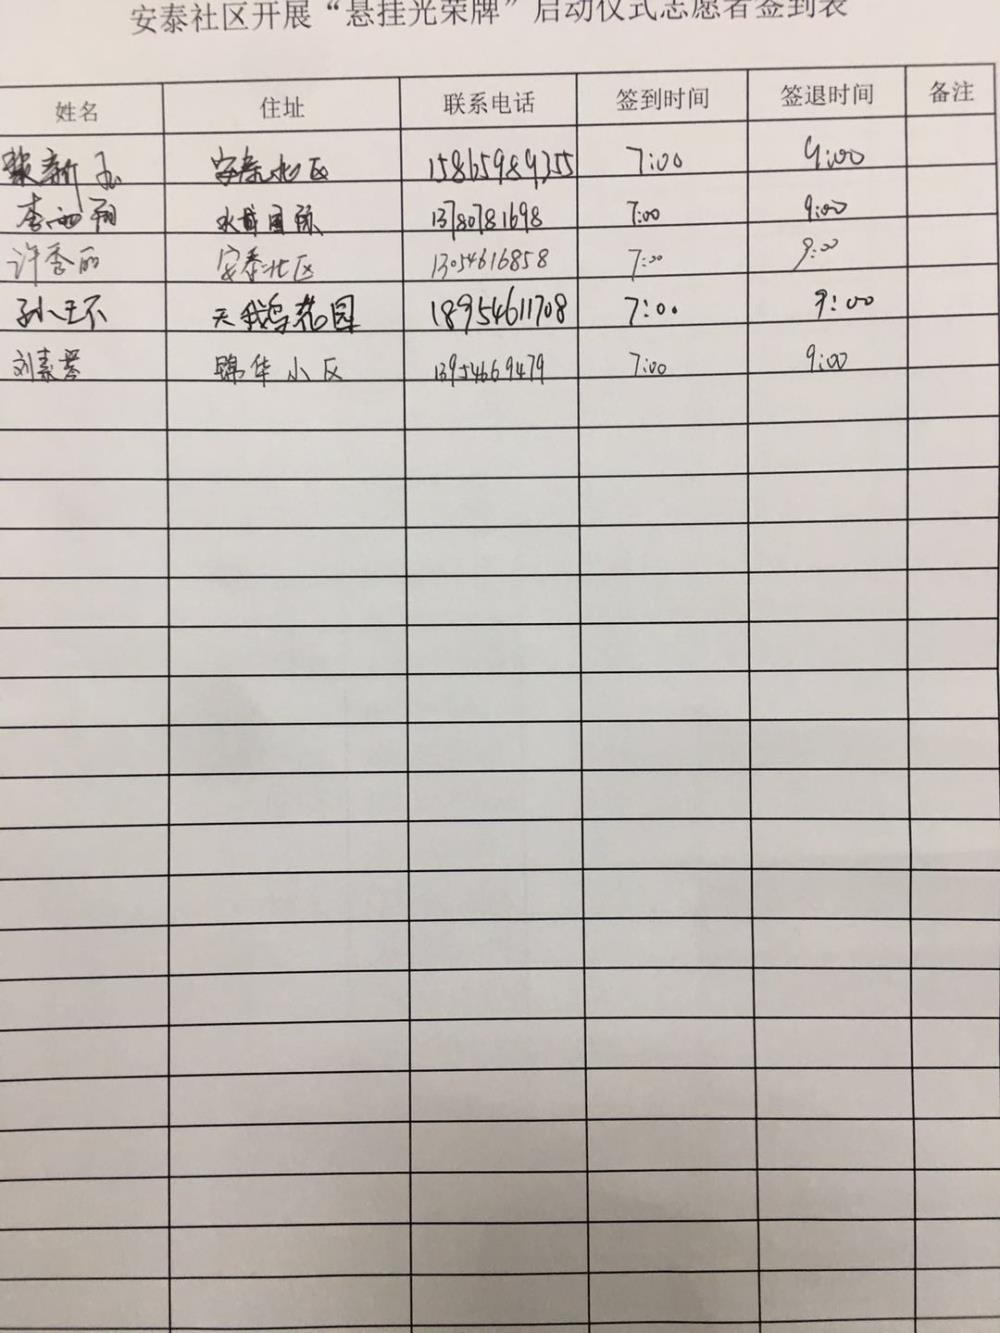 安泰社区开展“悬挂光荣牌”启动仪式志愿者签到表
姓名 住址 联系电话 签到时间 签退时间 备注
安泰北区 15865989355 7:00 9:00
李 13780781698 7:00 9:00
许秀丽 安泰北区 13054616858 7:00 9:00
孙 天鹅花园 18954611708 7:00 9:00
刘素琴 锦华小区 13954669479 7:00 9:00